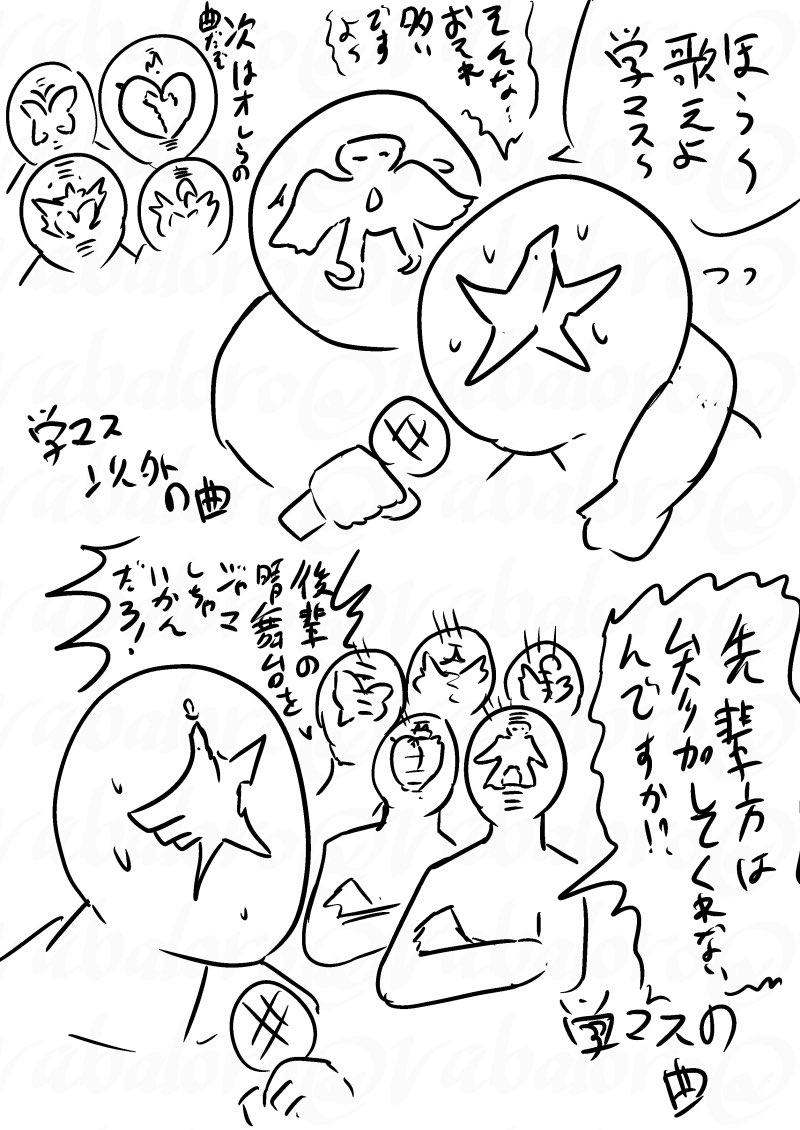 ほら〜
歌えよ
学マス〜
そんな…
おそれ
多い
です
よ〜
次はオレらの
学マス
以外
の曲
先輩方は
参加してくれない
んですか!?
後輩の
晴舞台を
ジャマ
しちゃ
いかん
だろ!
学マスの
曲